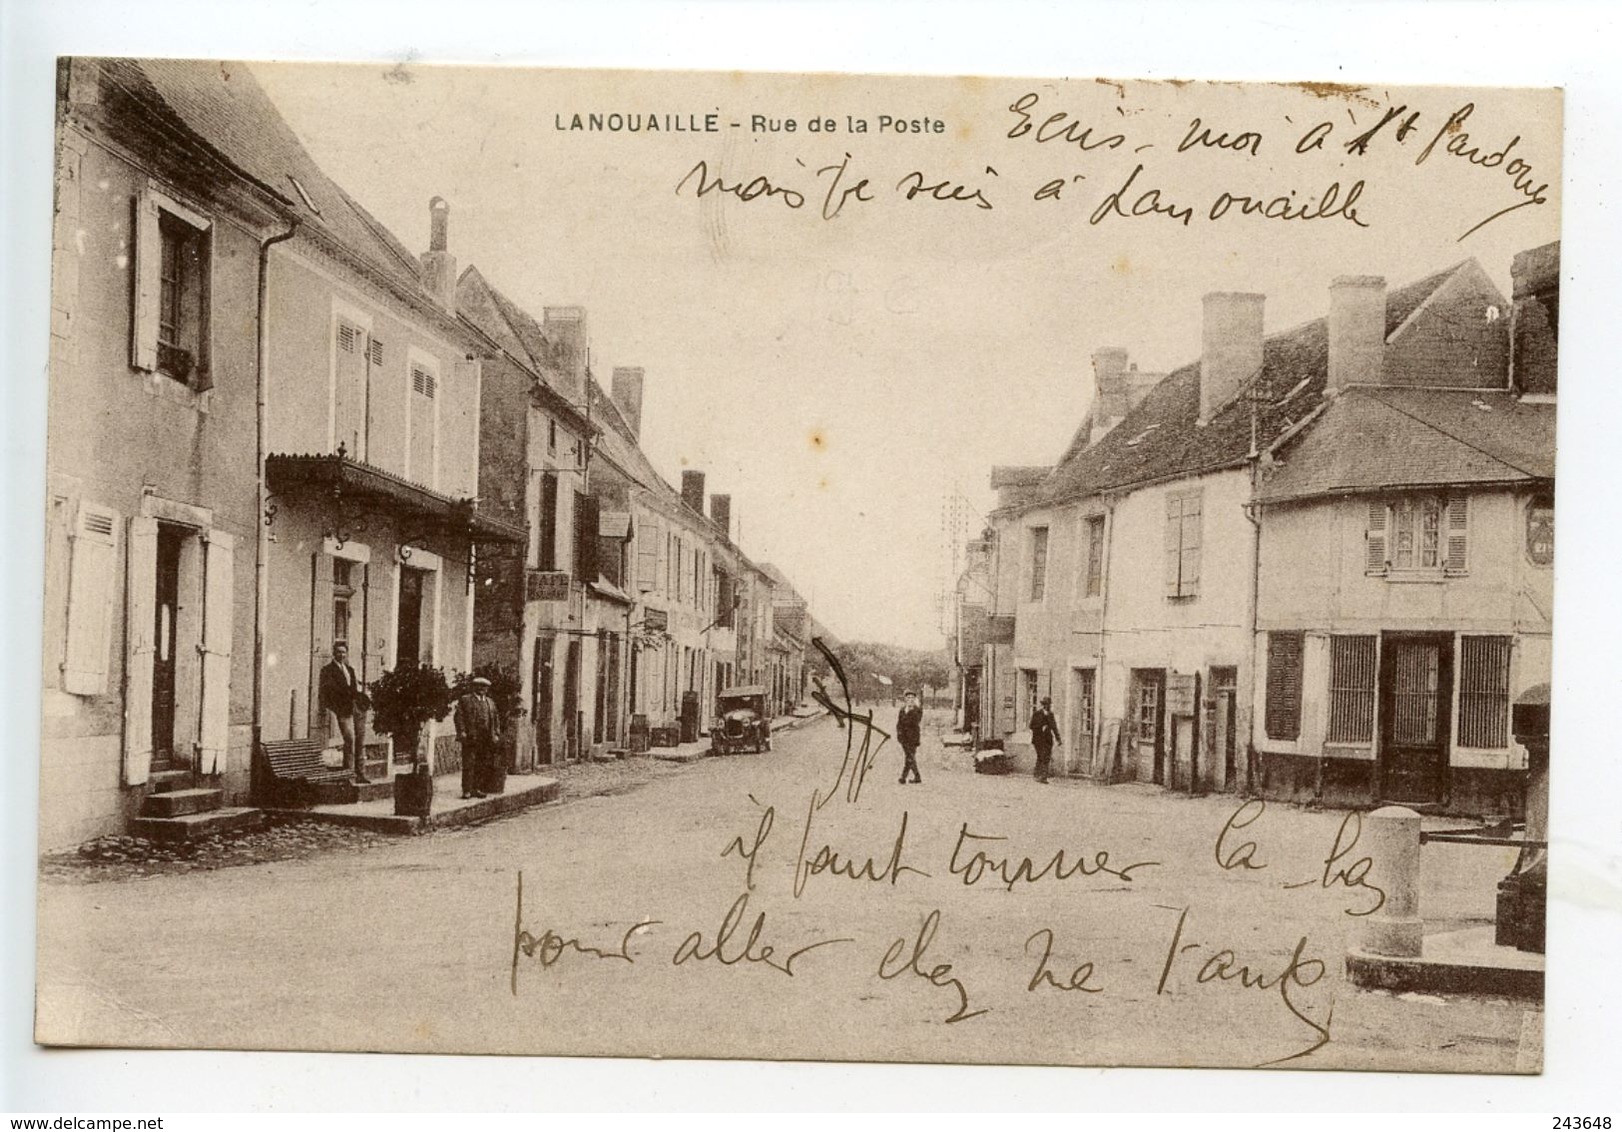 LANOUAILLE - Rue de la Poste
Ecris-moi à St Pardoux
mais je suis à Lanouaille
CAFÉ
il faut tourner la-bas
pour aller chez
www.delcampe.net
243648